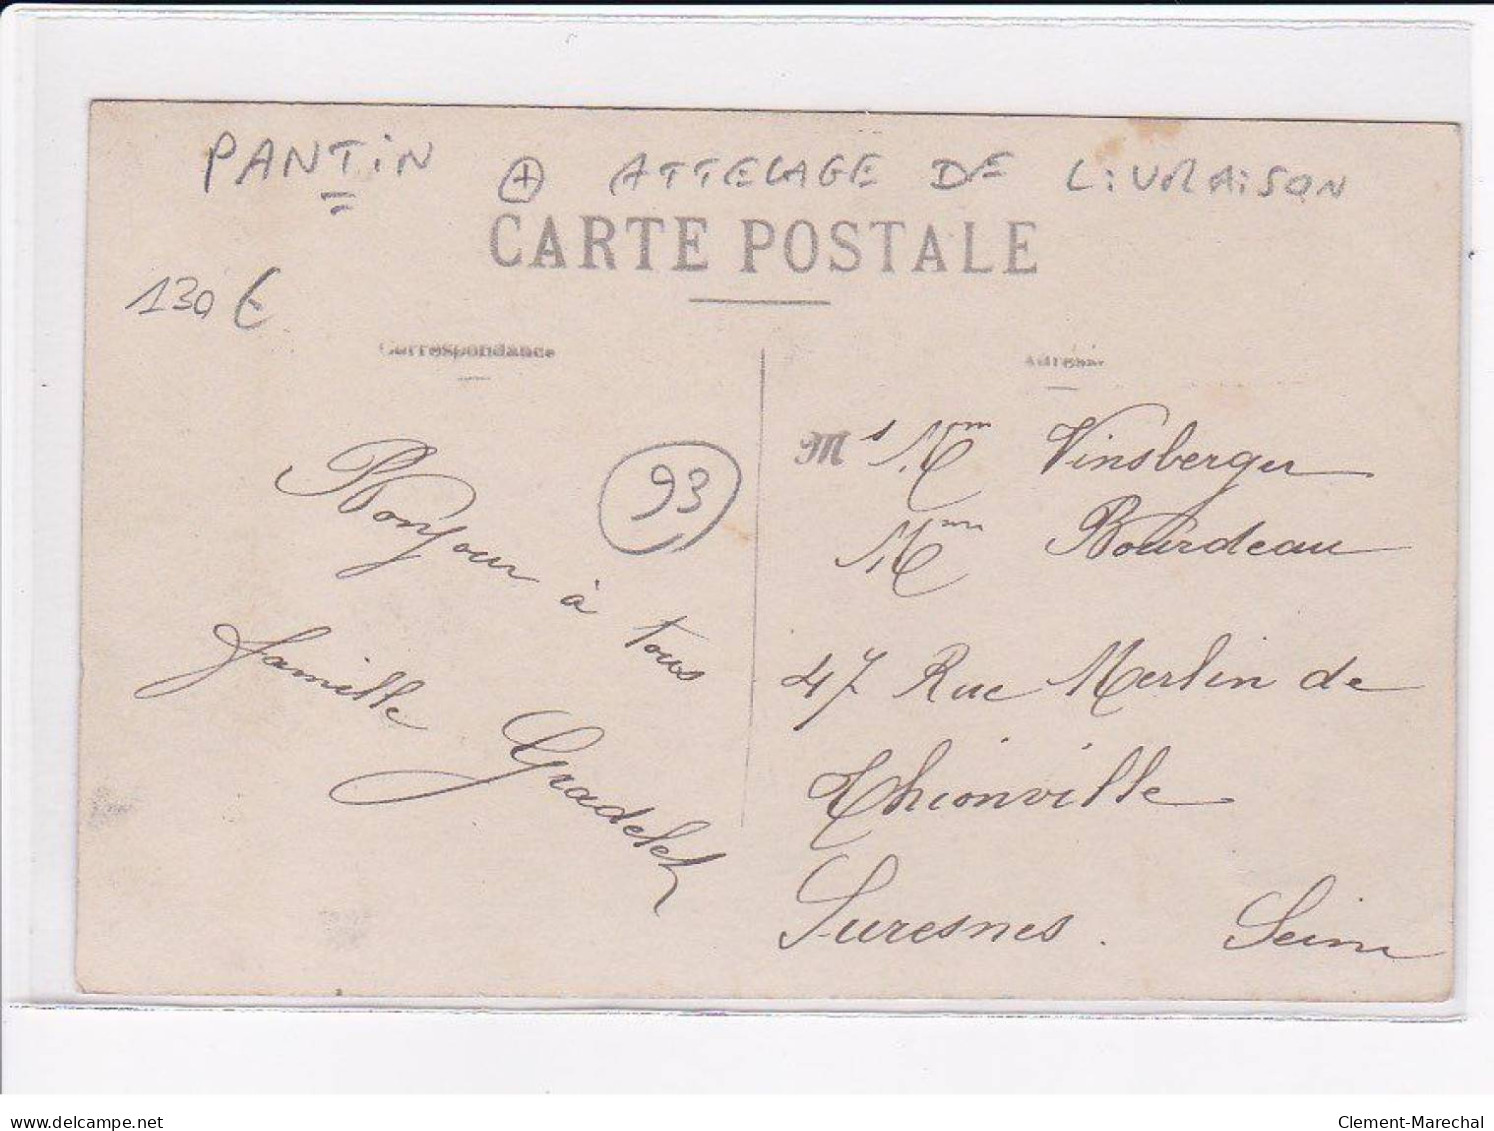 PANTiN + ATTELAGE DE LiVRAiSON
CARTE POSTALE
130 €
Correspondance
Adresse
93
Bonjour à tous
famille Gradelet
Ms Mme Vinsberger
Mme Bourdeau
47 Rue Merlin de
Thionville
Suresnes. Seine
delcampe.net
Clement-Marechal